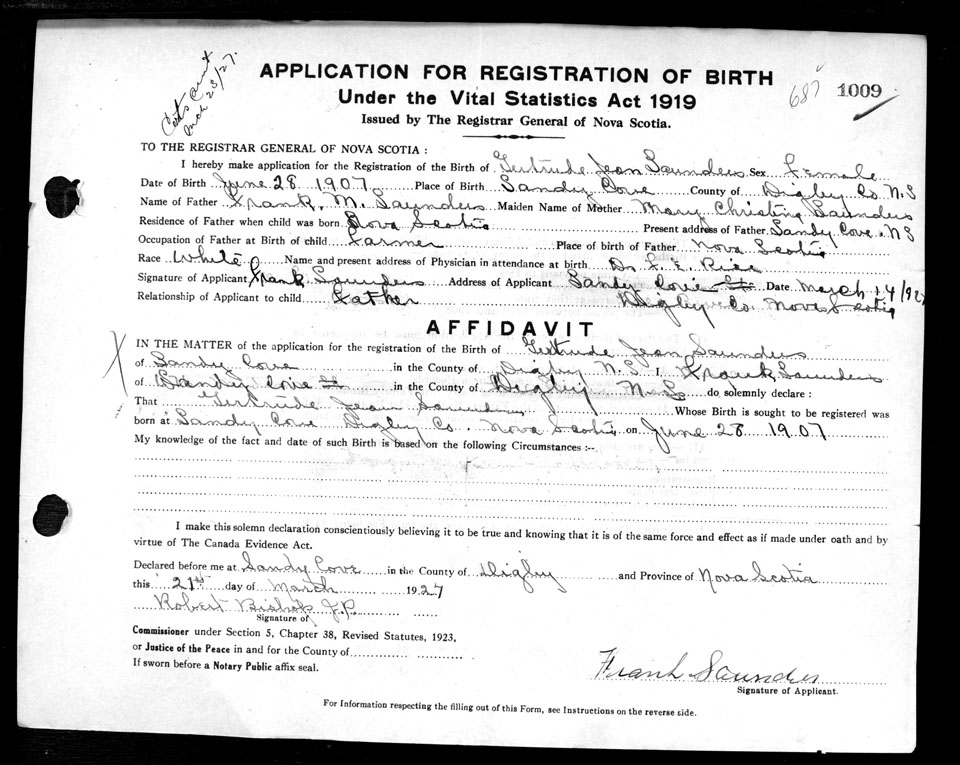 Certs Sent
Mch 23/27.
APPLICATION FOR REGISTRATION OF BIRTH
687 1009
Under the Vital Statistics Act 1919
Issued by The Registrar General of Nova Scotia.
TO THE REGISTRAR GENERAL OF NOVA SCOTIA :
I hereby make application for the Registration of the Birth of Gertrude Jean Saunders Sex Female
Date of Birth June 28 1907 Place of Birth Sandy Cove County of Digby Co N.S
Name of Father Frank M. Saunders Maiden Name of Mother Mary Christina Saunders
Residence of Father when child was born Nova Scotia Present address of Father Sandy Cove N S
Occupation of Father at Birth of child Farmer Place of birth of Father Nova Scotia
Race White Name and present address of Physician in attendance at birth Dr. F. E. Rice
Signature of Applicant Frank Saunders Address of Applicant Sandy Cove Date March 14/927
Relationship of Applicant to child Father Digby Co. Nova Scotia
AFFIDAVIT
IN THE MATTER of the application for the registration of the Birth of Gertrude Jean Saunders
of Sandy Cove in the County of Digby N.S. I, Frank Saunders
of Sandy Cove in the County of Digby N.S. do solemnly declare :
That Gertrude Jean Saunders Whose Birth is sought to be registered was
born at Sandy Cove Digby Co. Nova Scotia on June 28 1907
My knowledge of the fact and date of such Birth is based on the following Circumstances :--
I make this solemn declaration conscientiously believing it to be true and knowing that it is of the same force and effect as if made under oath and by
virtue of The Canada Evidence Act.
Declared before me at Sandy Cove in the County of Digby and Province of Nova Scotia
this 21st day of March 1927
Robert Bishop J.P.
Signature of
Commissioner under Section 5, Chapter 38, Revised Statutes, 1923,
or Justice of the Peace in and for the County of
If sworn before a Notary Public affix seal.
Frank Saunders
Signature of Applicant.
For Information respecting the filling out of this Form, see Instructions on the reverse side.